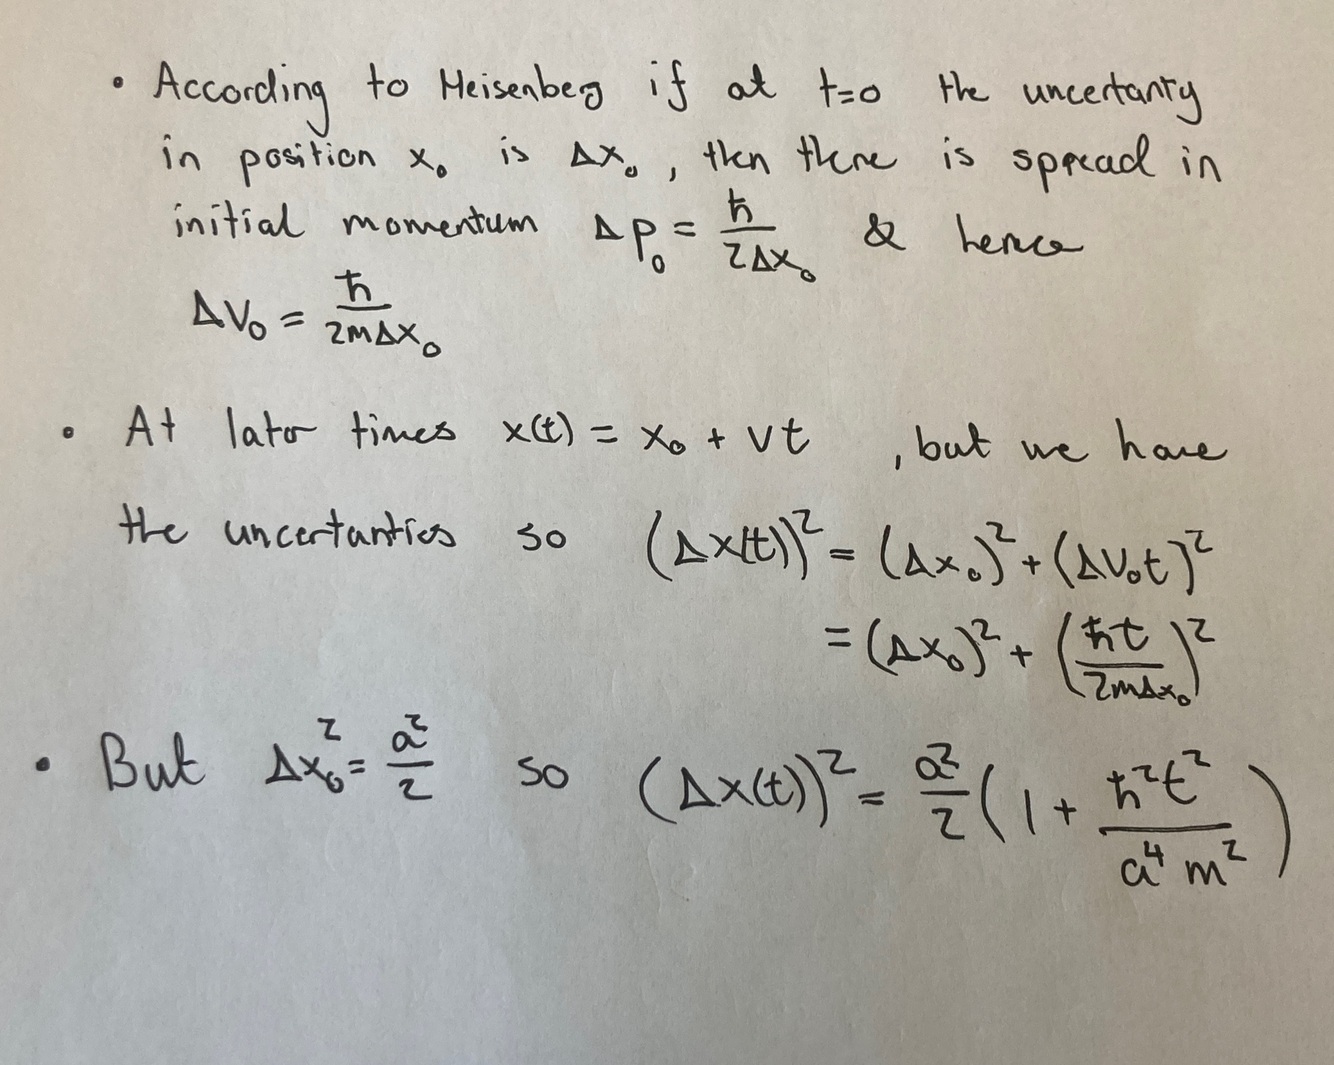 • According to Heisenberg if at t=0 the uncertanty
in position x₀ is Δx₀, then there is spread in
initial momentum Δp₀ = ħ/2Δx₀ & hence
ΔV₀ = ħ/2mΔx₀
• At later times x(t) = x₀ + vt , but we have
the uncertanties so (Δx(t))² = (Δx₀)² + (ΔV₀t)²
= (Δx₀)² + (ħt/2mΔx₀)²
• But Δx₀² = a²/2 so (Δx(t))² = a²/2 (1 + ħ²t²/a⁴m²)